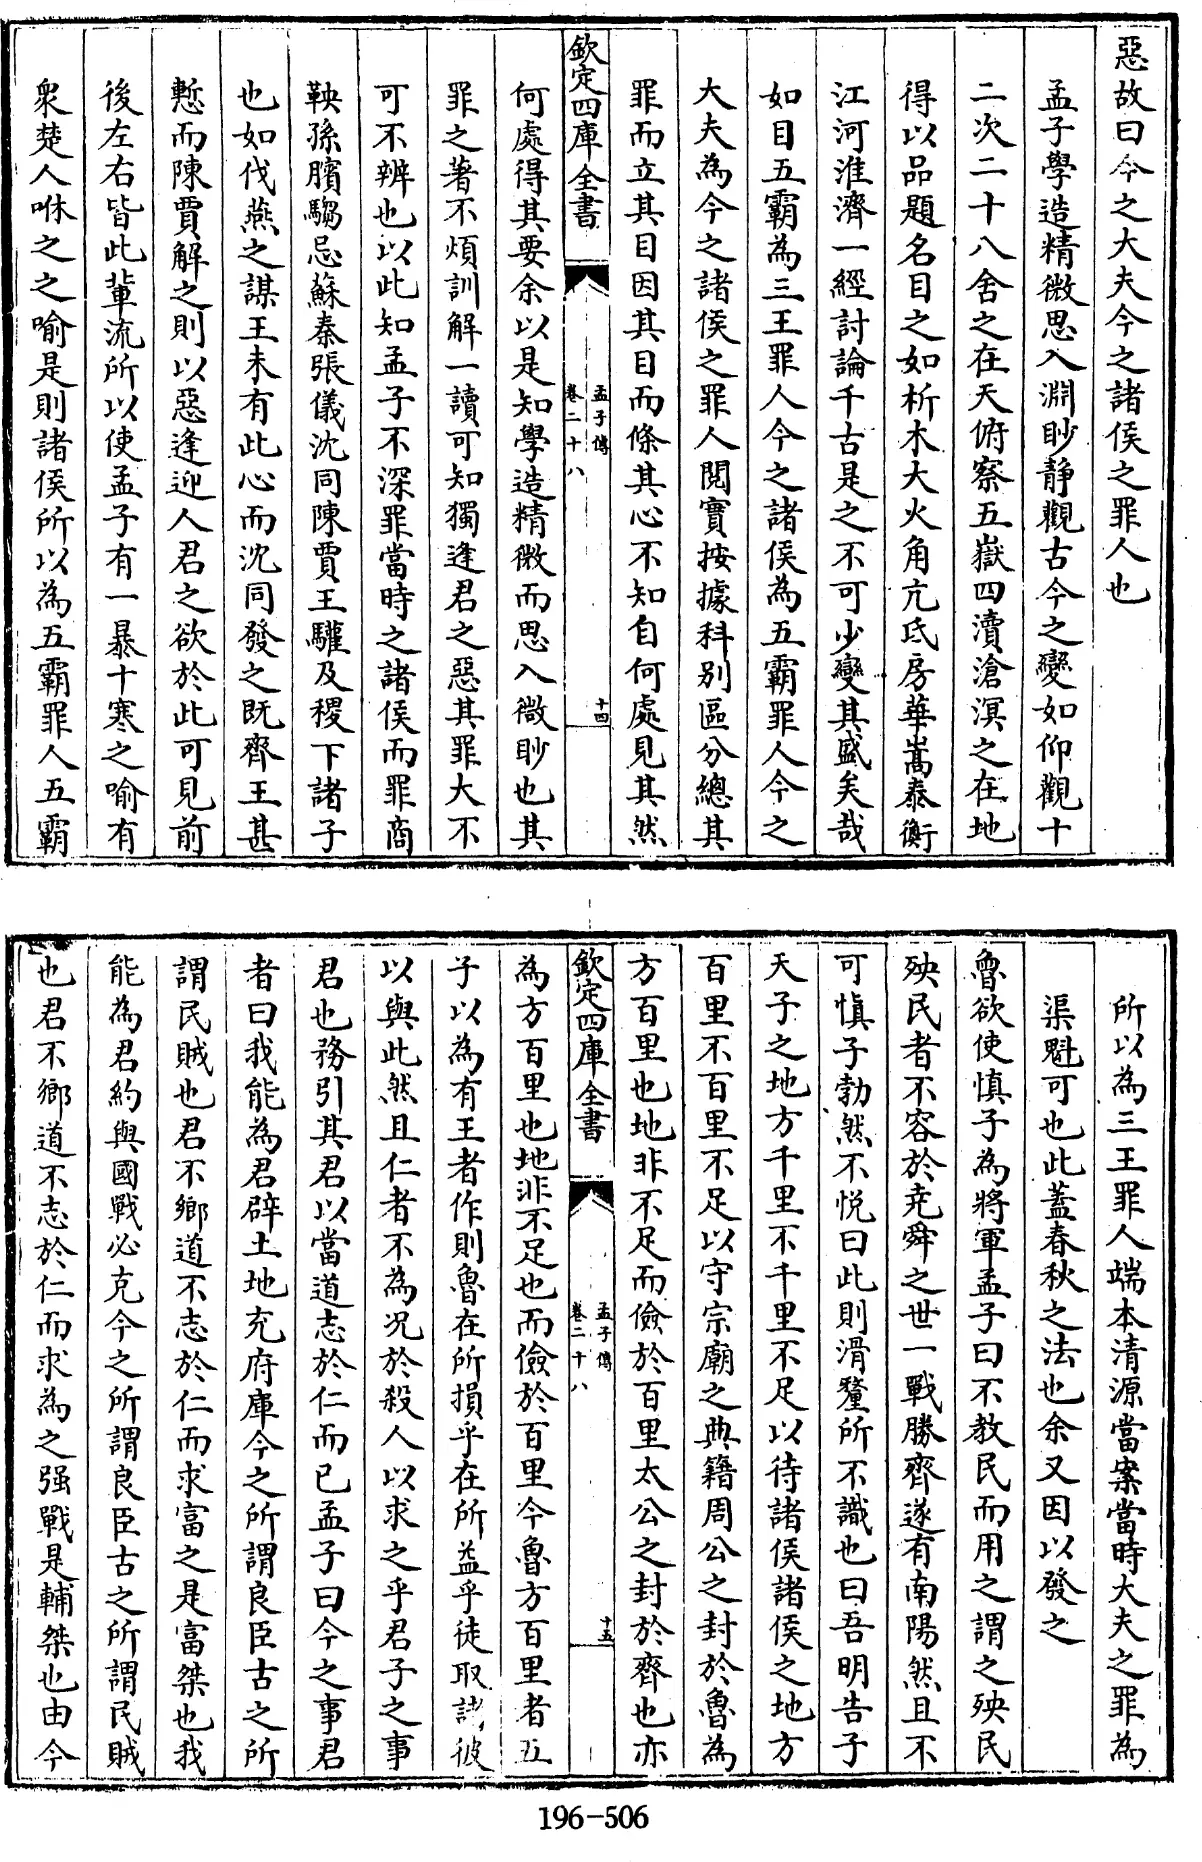 惡故曰今之大夫今之諸侯之罪人也
孟子學造精微思入淵眇靜觀古今之變如仰觀十
二次二十八舍之在天俯察五嶽四瀆滄溟之在地
得以品題名目之如析木大火角亢氐房華嵩泰衡
江河淮濟一經討論千古是之不可少變其盛矣哉
如目五霸為三王罪人今之諸侯為五霸罪人今之
大夫為今之諸侯之罪人閱實按據科別區分總其
罪而立其目因其目而條其心不知自何處見其然
欽定四庫全書
孟子傳
卷二十八
十四
何處得其要余以是知學造精微而思入微眇也其
罪之著不煩訓解一讀可知獨逢君之惡其罪大不
可不辨也以此知孟子不深罪當時之諸侯而罪商
鞅孫臏騶忌蘇秦張儀沈同陳賈王驩及稷下諸子
也如伐燕之謀王未有此心而沈同發之既齊王甚
慙而陳賈解之則以惡逢迎人君之欲於此可見前
後左右皆此輩流所以使孟子有一暴十寒之喻有
衆楚人咻之之喻是則諸侯所以為五霸罪人五霸
所以為三王罪人端本清源當案當時大夫之罪為
渠魁可也此蓋春秋之法也余又因以發之
魯欲使慎子為將軍孟子曰不教民而用之謂之殃民
殃民者不容於堯舜之世一戰勝齊遂有南陽然且不
可慎子勃然不悅曰此則滑釐所不識也曰吾明告子
天子之地方千里不千里不足以待諸侯諸侯之地方
百里不百里不足以守宗廟之典籍周公之封於魯為
方百里也地非不足而儉於百里太公之封於齊也亦
欽定四庫全書
孟子傳
卷二十八
十五
為方百里也地非不足也而儉於百里今魯方百里者五
子以為有王者作則魯在所損乎在所益乎徒取諸彼
以與此然且仁者不為況於殺人以求之乎君子之事
君也務引其君以當道志於仁而已孟子曰今之事君
者曰我能為君辟土地充府庫今之所謂良臣古之所
謂民賊也君不鄉道不志於仁而求富之是富桀也我
能為君約與國戰必克今之所謂良臣古之所謂民賊
也君不鄉道不志於仁而求為之强戰是輔桀也由今
196-506